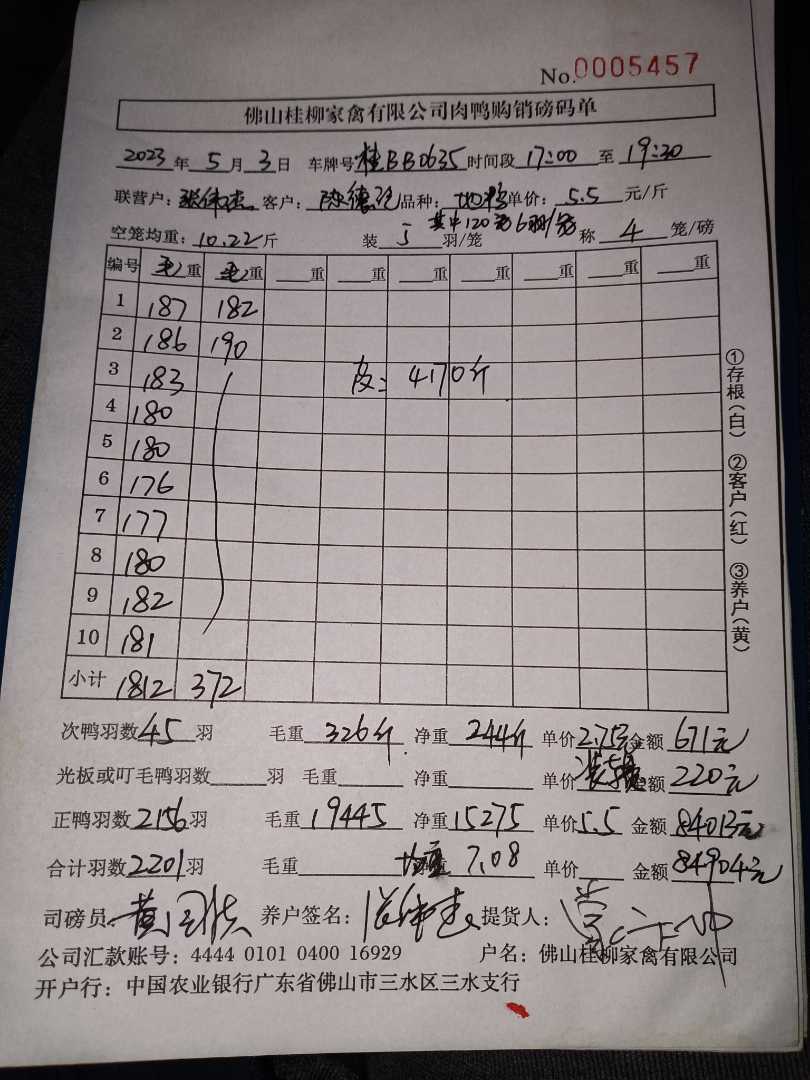 No.0005457
佛山桂柳家禽有限公司肉鸭购销磅码单
2023年5月3日 车牌号桂BB0635时间段17:00至19:30
联营户:张伟杰 客户:陈德 品种: 单价:5.5元/斤
其中120笼6羽/笼
空笼均重:10.22斤 装5羽/笼 称4笼/磅
编号 毛重 毛重 重 重 重 重 重 重 重
1 187 182
2 186 190
3 183 皮:4170斤
4 180
5 180
6 176
7 177
8 180
9 182
10 181
小计 1812 372
①存根(白) ②客户(红) ③养户(黄)
次鸭羽数45羽 毛重326斤 净重244斤 单价2.75元金额671元
光板或叮毛鸭羽数 羽 毛重 净重 单价 金额220元
正鸭羽数2156羽 毛重19445 净重15275 单价5.5 金额84013元
合计羽数2201羽 毛重 均重7.08 单价 金额84904元
司磅员: 养户签名:张伟杰 提货人:
公司汇款账号:4444 0101 0400 16929 户名:佛山桂柳家禽有限公司
开户行:中国农业银行广东省佛山市三水区三水支行